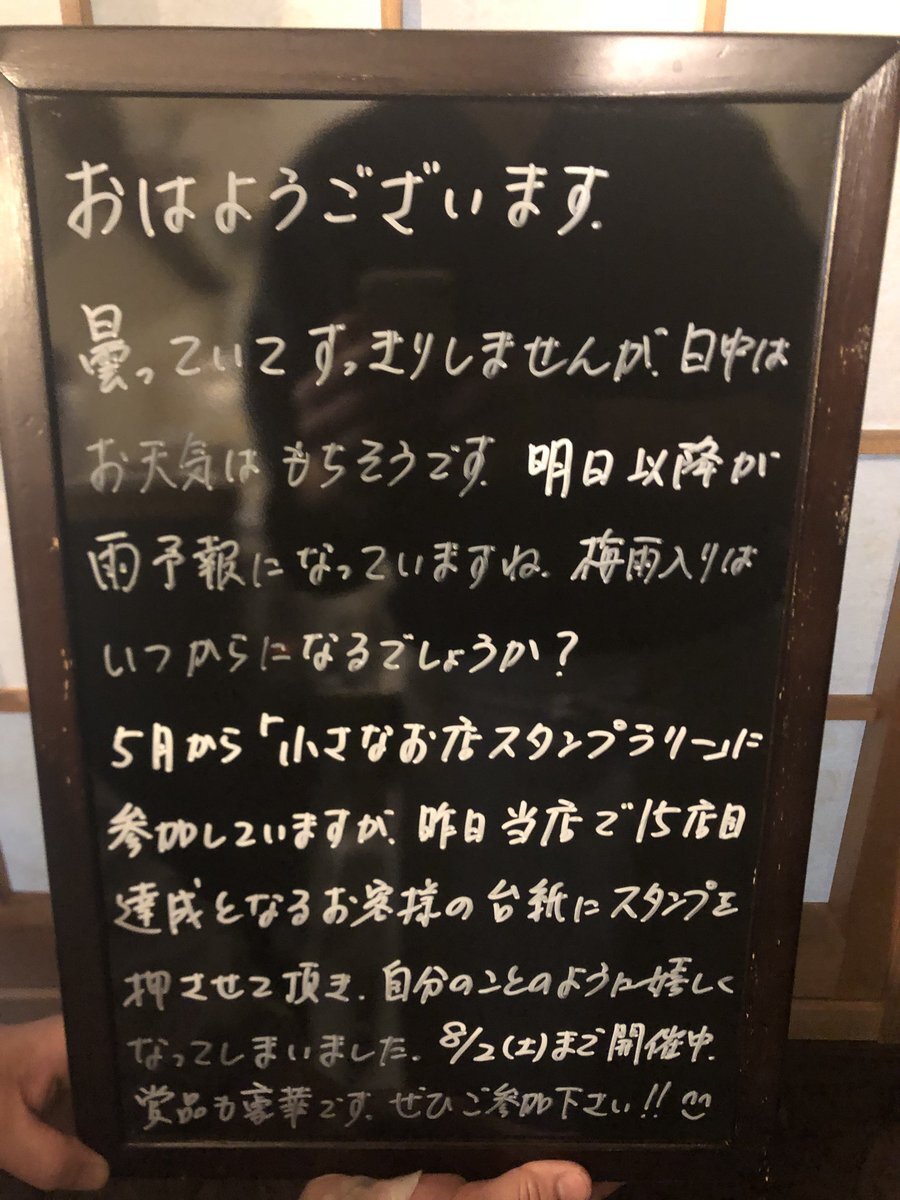 おはようございます.
曇っていてすっきりしませんが、日中は
お天気はもちそうです. 明日以降が
雨予報になっていますね. 梅雨入りは
いつからになるでしょうか?
5月から「小さなお店スタンプラリー」に
参加していますが、昨日当店で15店目
達成となるお客様の台紙にスタンプを
押させて頂き、自分のことのように嬉しく
なってしまいました. 8/2(土)まで開催中.
賞品も豪華です. ぜひご参加下さい!!